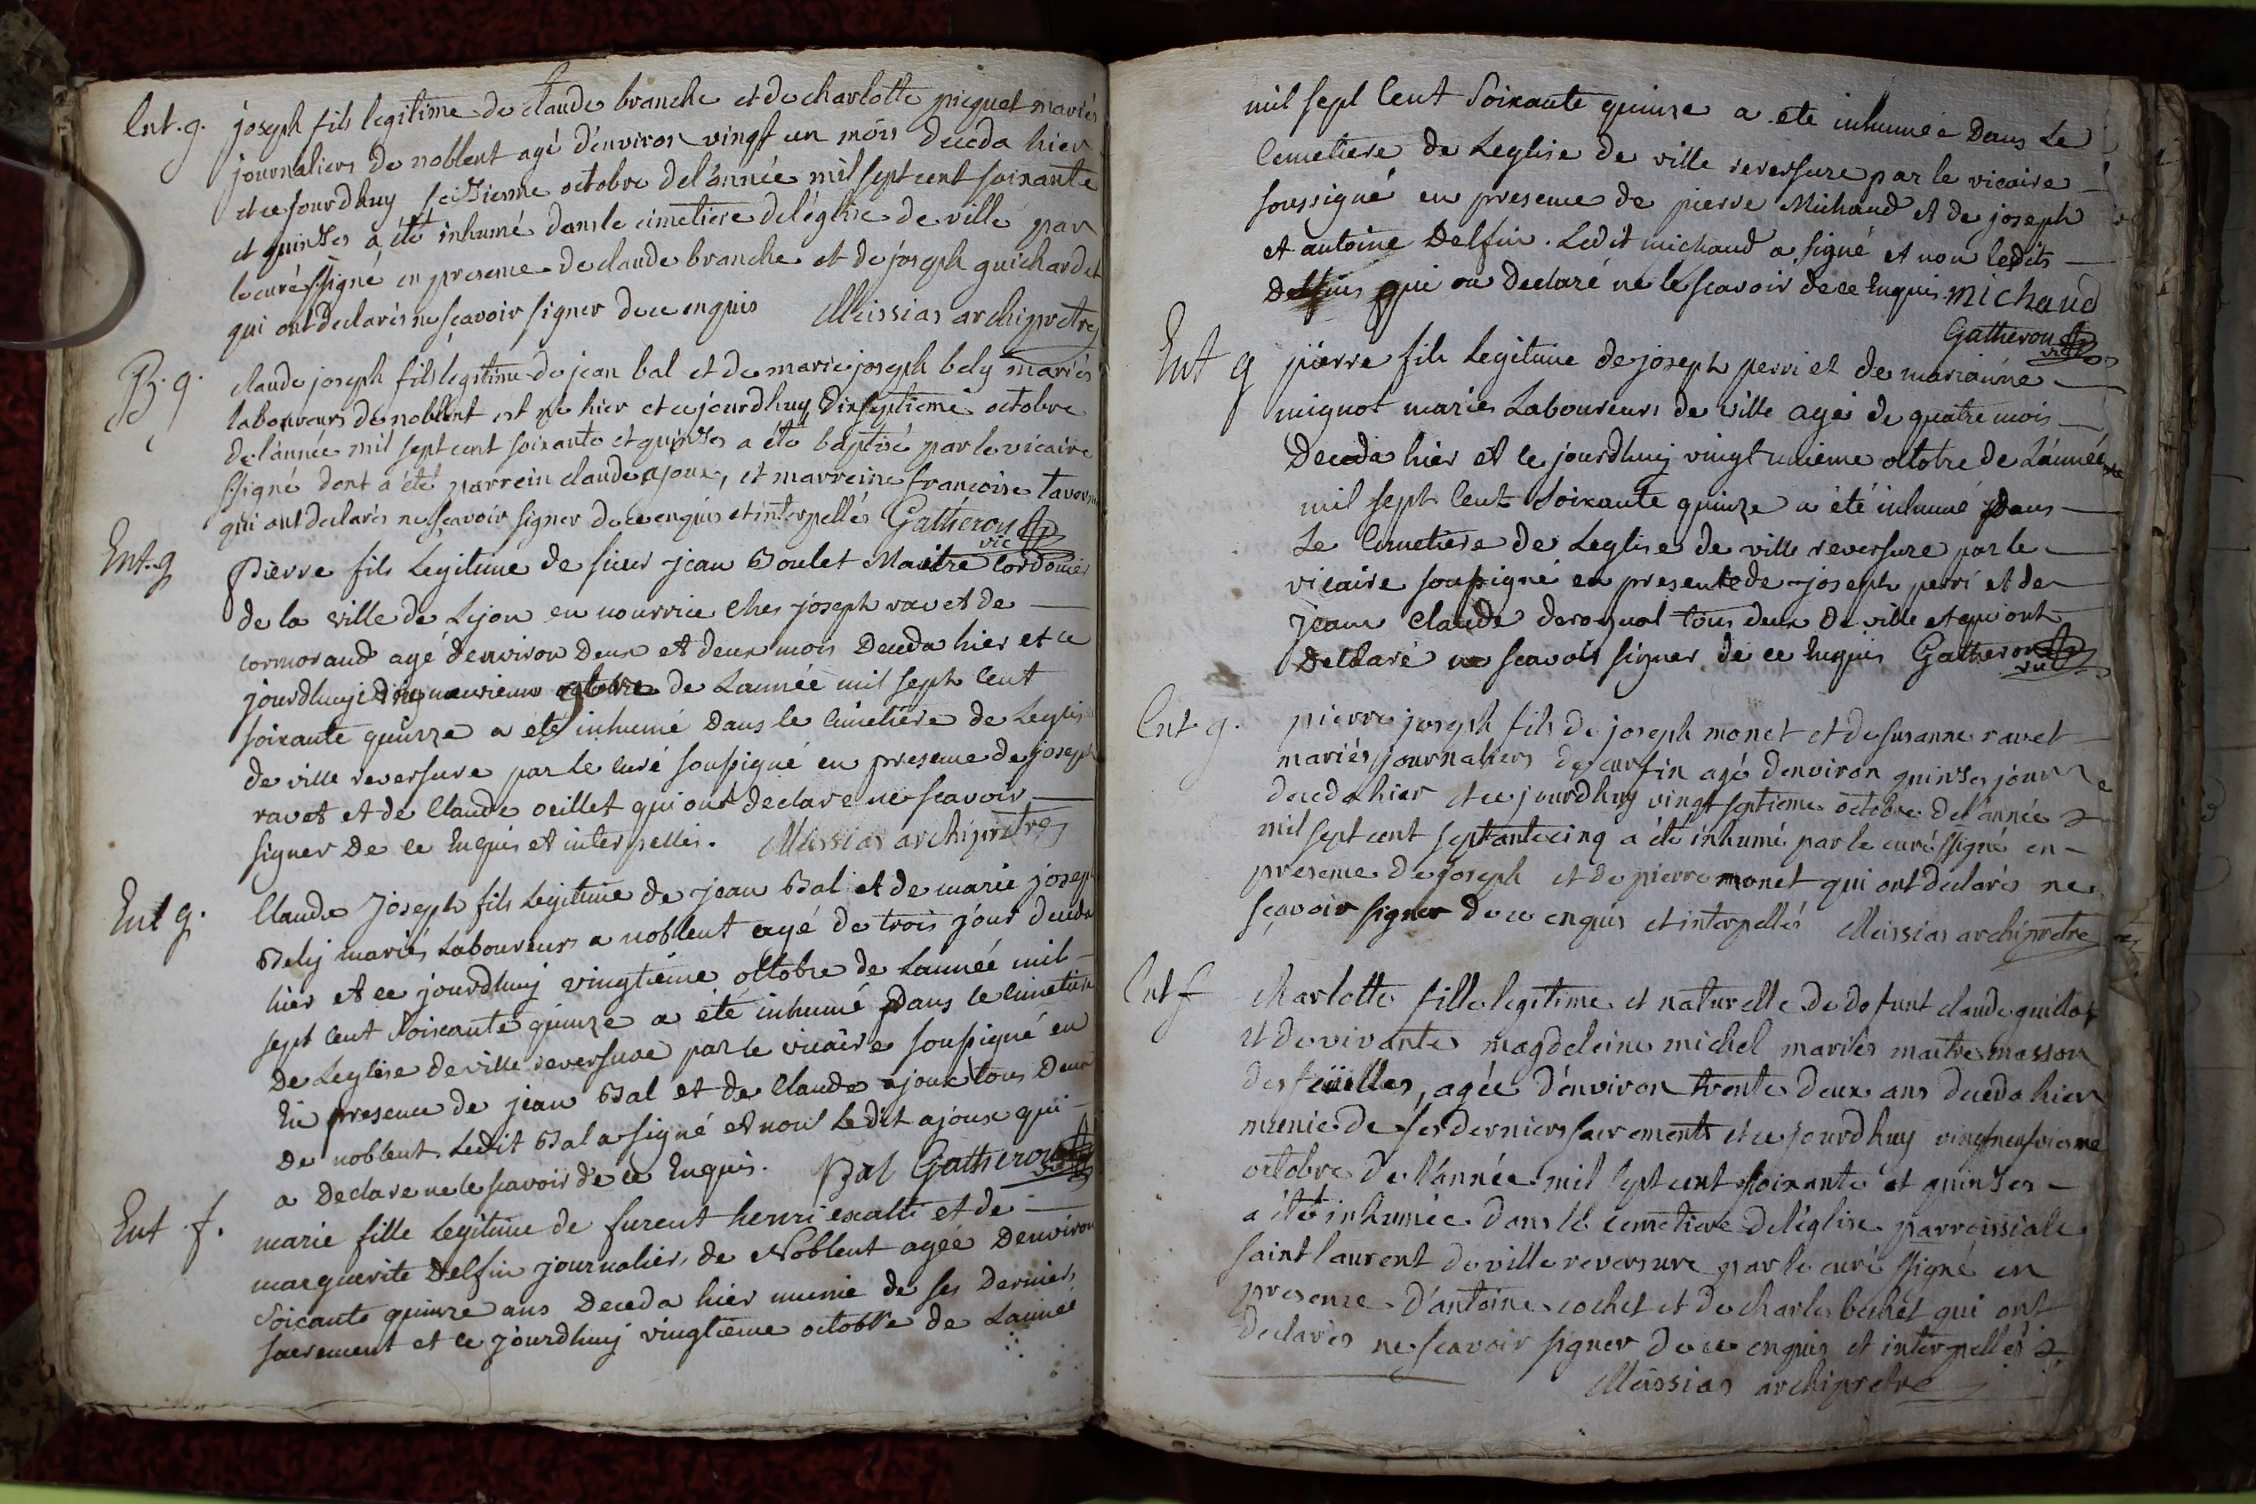 Ent. g. joseph fils legitime de claude branche et de charlotte picquet mariés
journaliers de noblent agé d'environ vingt un mois deceda hier
et ce jourd'huy seiziesme octobre de l'année mil sept cent soixante
et quinzes a été inhumé dans le cimetiere de l'église de ville par
le curé ssigné en presence de claude branche et de joseph guichardet
qui ont declarés ne scavoir signer de ce enquis Messias archipretre
B. g. claude joseph fils legitime de jean bal et de marie joseph bely mariés
laboureurs de noblent est né hier et ce jourdhuy dixseptieme octobre
de l'année mil sept cent soixante et quinzes a été baptisé par le vicaire
ssigné dont a été parrein claude ajoux, et marreine francoise
qui ont declarés ne scavoir signer de ce enquis et interpellés Gatheron
vic
Ent. g Pierre fils Legitime de sieur jean Boulet Maitre Cordonier
de la ville de Lyon en nourrice Ches joseph ravet de
cormoraud agé d'environ Deux et deux mois Deceda hier et ce
jourdhuy Dix neuvieme octobre de Lannée mil sept Cent
soixante quinze a eté inhumé Dans le Cimetiere de Leglise
de ville reversure par le Curé soussigné en presence de joseph
ravet et de Claude oeillet qui ont declare ne scavoir
signer De ce Enquis et interpellés. Messias archipretre
Ent g. Claude Joseph fils Legitime de jean Bal et de marie joseph
Bely mariés Laboureurs a noblent agé de trois jour deceda
hier et ce jourdhuy vingtieme octobre de Lannée mil
sept Cent Soixante quinze a eté inhumé Dans le Cimetiere
De Leglise de ville reversure par le vicaire soussigné en
En presence de jean Bal et de Claude ajoux tous Deux
De noblent. Ledit Bal a signé et non Ledit ajoux qui
a Declare ne le scavoir de ce Enquis. Bal Gatheron
vic
Ent. f. marie fille Legitime de furent henri et de
marguerite Delfin journaliers de Noblent agée Denviron
Soixante quinze ans Deceda hier munie de ses Derniers
sacrement et ce jourdhuy vingtieme octobre de Lannée
mil sept Cent Soixante quinze a eté inhumée Dans Le
Cimetiere de Leglise de ville reversure par le vicaire
soussigné en presence de pierre Michaud et de joseph
et antoine Delfin. Ledit michaud a signé et non lesdits
Delfins qui on Declaré ne le scavoir de ce Enquis michaud
Gatheron
vic
Ent g pierre fils Legitime de joseph perri et de marianne
mignot mariés Laboureurs de ville agé de quatre mois
Deceda hier et ce jourdhuy vingt unieme octobre de Lánnée
mil sept Cent Soixante quinze a été inhumé Dans
Le Cimetiere de Leglise de ville reversure par le
vicaire soussigné en presence de joseph perri et de
jean Claude tous deux De ville et qui ont
Declaré ne scavoir signer de ce Enquis Gatheron
vic
Ent g. pierre joseph fils de joseph monet et de susanne ravet
mariés journaliers de curfin agé d'environ quinzes jour
deceda hier et ce jourdhuy vingt septieme octobre de l'année
mil sept cent septante cinq a été inhumé par le curé ssigné en
presence de joseph et de pierre monet qui ont declarés ne
sçavoir signer de ce enquis et interpellés Messias archipretre
Ent f charlotte fille legitime et naturelle de defunt claude guillot
et de vivante magdeleine michel mariés maitre masson
des feüilles, agée d'environ trente deux ans deceda hier
munie de ses derniers sacrements et ce jourdhuy vingtneufvieme
octobre de l'année mil sept cent soixante et quinzes
a été inhumée dans le cemetiere de l'église parroissiale
saint laurent de ville reversure par le curé ssigné en
presence d'antoine cochet et de charles bechet qui ont
declarés ne scavoir signer de ce enquis et interpellés
Messias archipretre